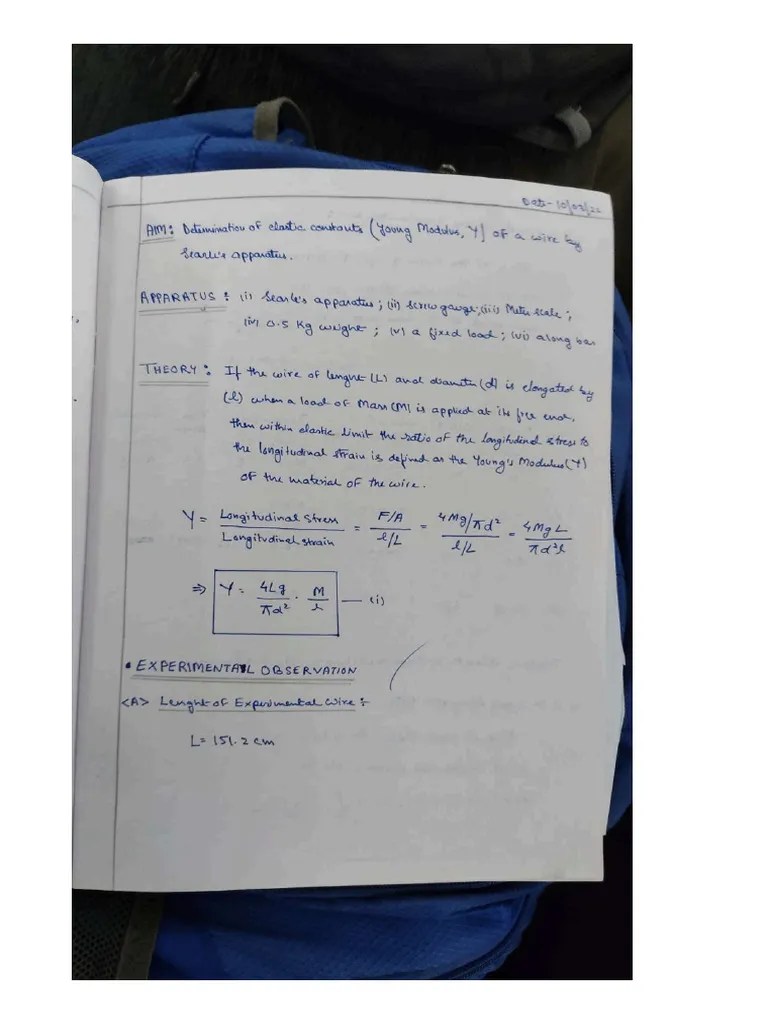 Date - 10/03/22
AIM: Determination of elastic constants (Young Modulus, Y) of a wire by
Searle's apparatus.
APPARATUS: (i) Searle's apparatus; (ii) Screw gauge; (iii) Meter scale;
(iv) 0.5 Kg weight; (v) a fixed load; (vi) along bar
THEORY: If the wire of lenght (L) and diameter (d) is elongated by
(l) when a load of Mass (M) is applied at its free end,
then within elastic limit the ratio of the longitudinal stress to
the longitudinal strain is defined as the Young's Modulus (Y)
of the material of the wire.
Y = Longitudinal Stress / Longitudinal strain = F/A / l/L = 4Mg/πd² / l/L = 4MgL / πd²l
⇒ Y = 4Lg/πd² · M/l — (i)
• EXPERIMENTAL OBSERVATION
<A> Lenght of Experimental wire:
L = 151.2 cm